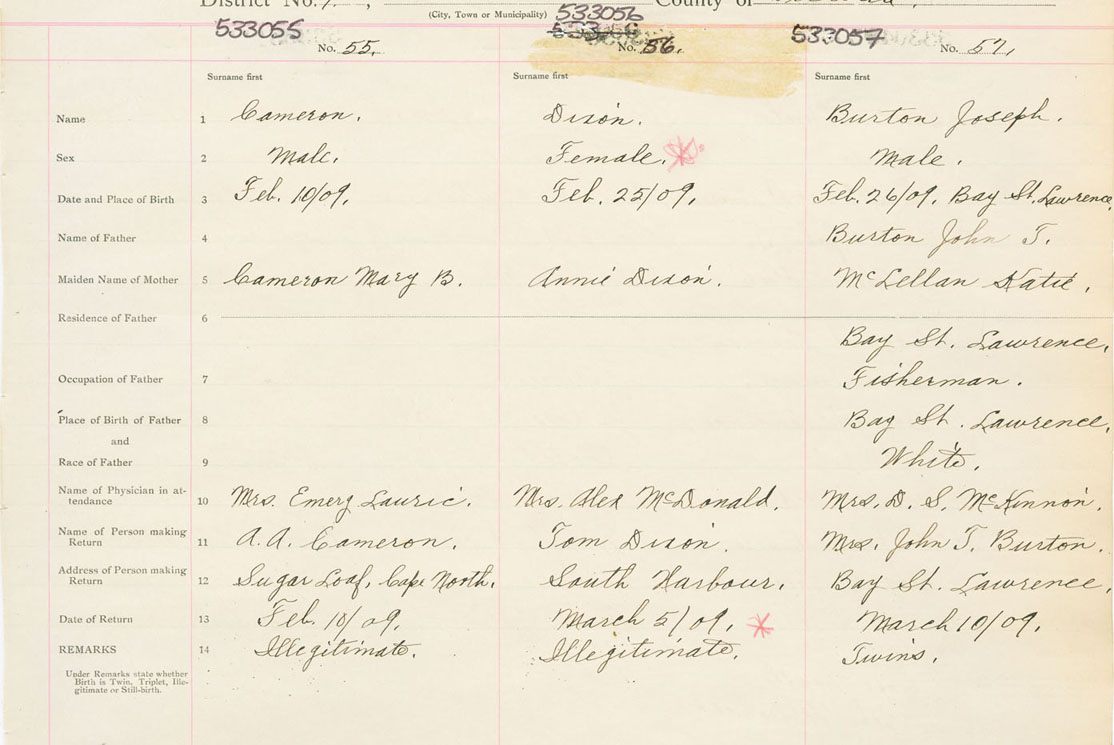 District No. 7,
County of
(City, Town or Municipality)
533055
533056
533057
No. 55.
No. 56.
No. 57.
Surname first
Surname first
Surname first
Name 1 Cameron. Dixon. Burton Joseph.
Sex 2 Male. Female. Male.
Date and Place of Birth 3 Feb. 10/09. Feb. 25/09. Feb. 26/09. Bay St. Lawrence.
Name of Father 4 Burton John T.
Maiden Name of Mother 5 Cameron Mary B. Annie Dixon. McLellan Katie.
Residence of Father 6
Bay St. Lawrence.
Occupation of Father 7 Fisherman.
Place of Birth of Father 8 Bay St. Lawrence.
and
Race of Father 9 White.
Name of Physician in at-
tendance 10 Mrs. Emery Laurie. Mrs. Alex McDonald. Mrs. D. S. McKinnon.
Name of Person making
Return 11 A. A. Cameron. Tom Dixon. Mrs. John T. Burton.
Address of Person making
Return 12 Sugar Loaf, Cape North. South Harbour. Bay St. Lawrence.
Date of Return 13 Feb. 18/09. March 5/09. March 10/09.
REMARKS 14 Illegitimate. Illegitimate. Twins.
Under Remarks state whether
Birth is Twin, Triplet, Ille-
gitimate or Still-birth.